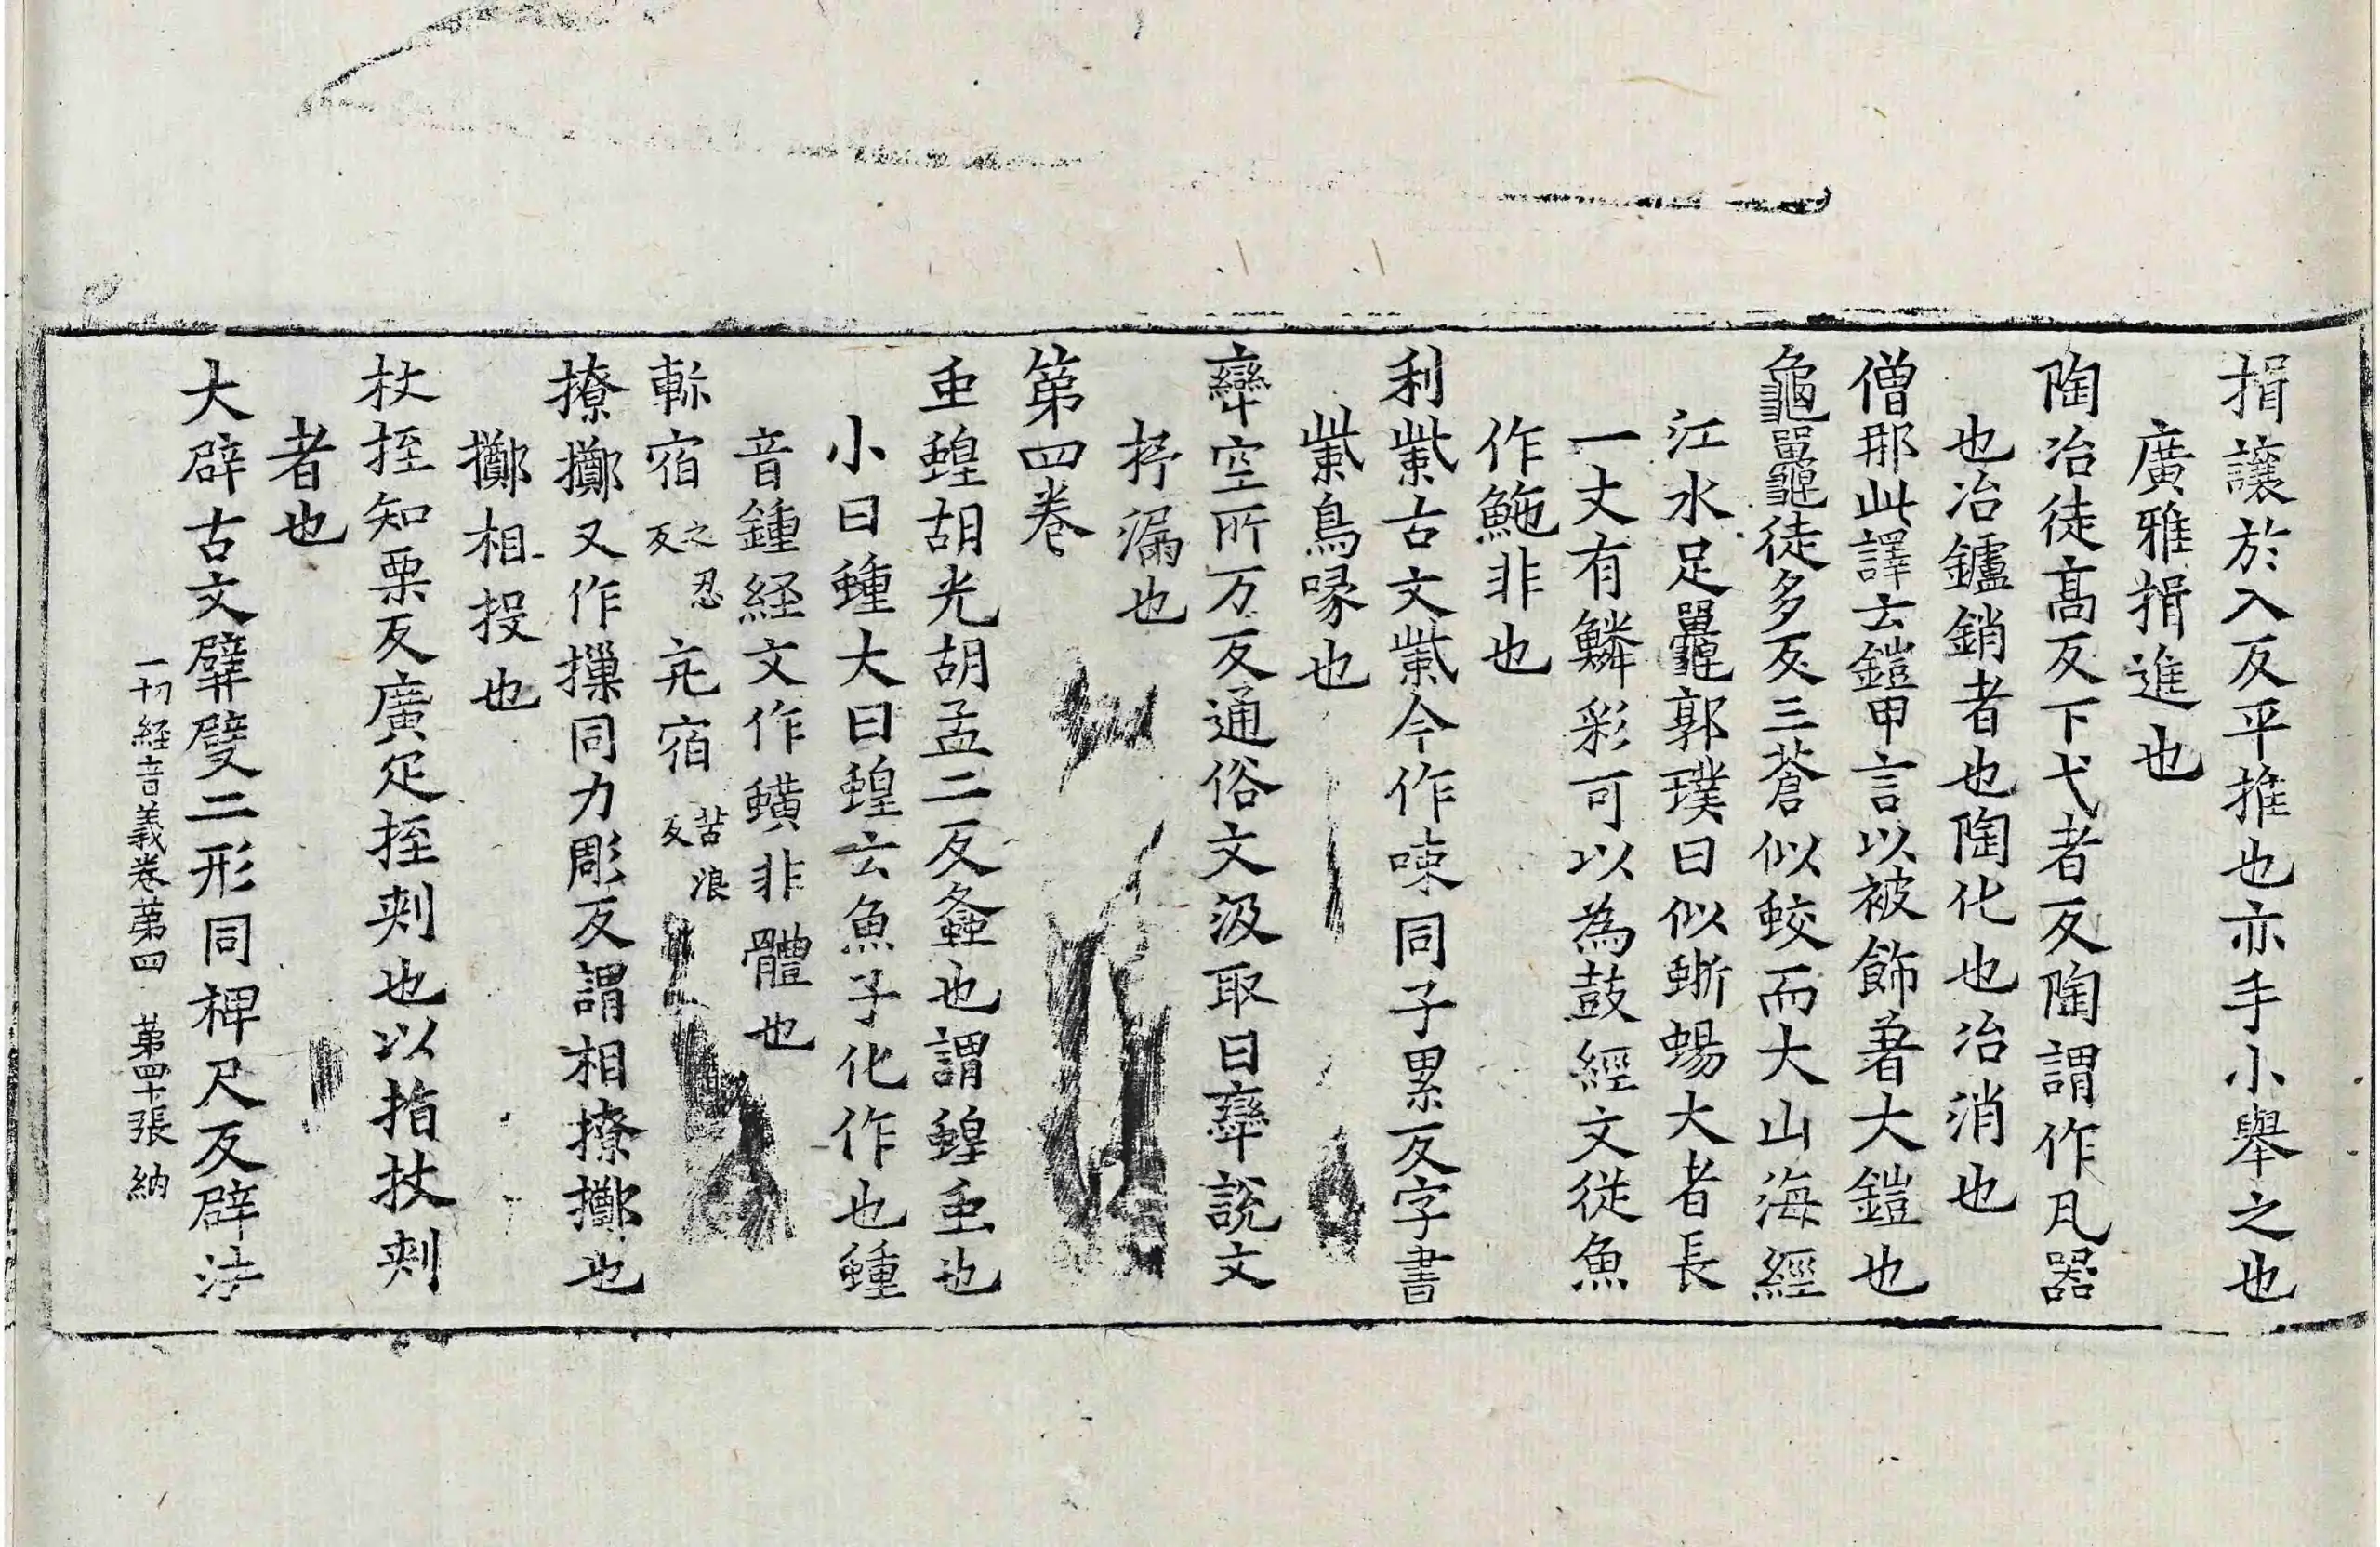 揖讓於入反平推也亦手小舉之也
廣雅揖進也
陶冶徒高反下弋者反陶謂作凡器
也冶鑪銷者也陶化也冶消也
僧那此譯云鎧甲言以被飾著大鎧也
龜鼉徒多反三蒼似蛟而大山海經
江水足鼉郭璞曰似蜥蜴大者長
一丈有鱗彩可以為鼓經文從魚
作鮑非也
利觜古文觜今作㖢同子累反字書
觜鳥喙也
孿空所万反通俗文汲取曰孿說文
抒漏也
第四卷
䖝蝗胡光胡孟二反螽也謂蝗䖝也
小曰蝩大曰蝗云魚子化作也蝩
音鍾経文作蟥非體也
軫宿之忍反亢宿苦浪反
撩擲又作摷同力彫反謂相撩擲也
擲相投也
杖挃知栗反廣疋挃刺也以指扙刺
者也
大辟古文𨐨𨐢二形同稗尺反辟法
一切経音義卷第四 第四十張 納